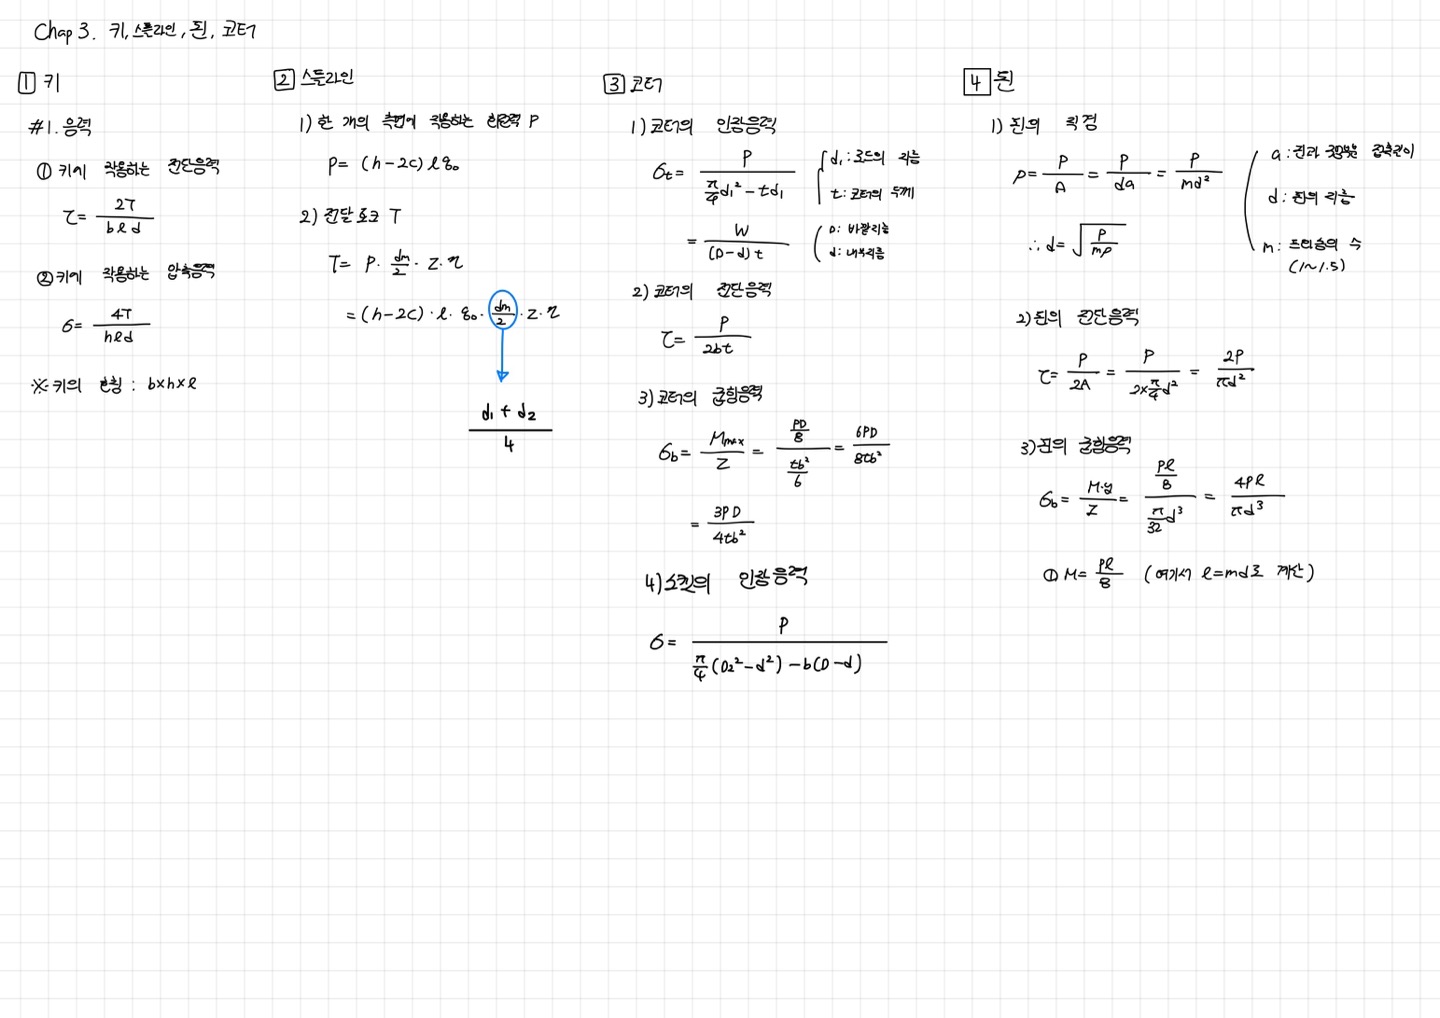 Chap 3. 키, 스플라인, 핀, 코터
1 키
#1. 응력
① 키에 작용하는 전단응력
τ = 2T / bld
② 키에 작용하는 압축응력
σ = 4T / hld
※ 키의 호칭 : b×h×l
2 스플라인
1) 한 개의 측면에 작용하는 회전력 P
P = (h-2c) l q₀
2) 전달 토크 T
T = P · dm/2 · Z · η
= (h-2c) · l · q₀ · dm/2 · Z · η
d₁ + d₂ / 4
3 코터
1) 코터의 인장응력
σt = P / (π/4 d₁² - td₁)
d₁ : 로드의 지름
t : 코터의 두께
= W / (D-d)t
D : 바깥지름
d : 내부지름
2) 코터의 전단응력
τ = P / 2bt
3) 코터의 굽힘응력
σb = Mmax / Z = (PD/8) / (tb²/6) = 6PD / 8tb²
= 3PD / 4tb²
4) 소켓의 인장응력
σ = P / (π/4 (D₂² - d²) - b(D-d))
4 핀
1) 핀의 직경
p = P/A = P/da = P/md²
∴ d = √(P/mp)
a : 핀과 접촉길이
d : 핀의 지름
m : 의 수
(1~1.5)
2) 핀의 전단응력
τ = P/2A = P / (2×π/4 d²) = 2P / πd²
3) 핀의 굽힘응력
σb = M·y / Z = (Pl/8) / (π/32 d³) = 4Pl / πd³
① M = Pl/8 (여기서 l=md로 계산)